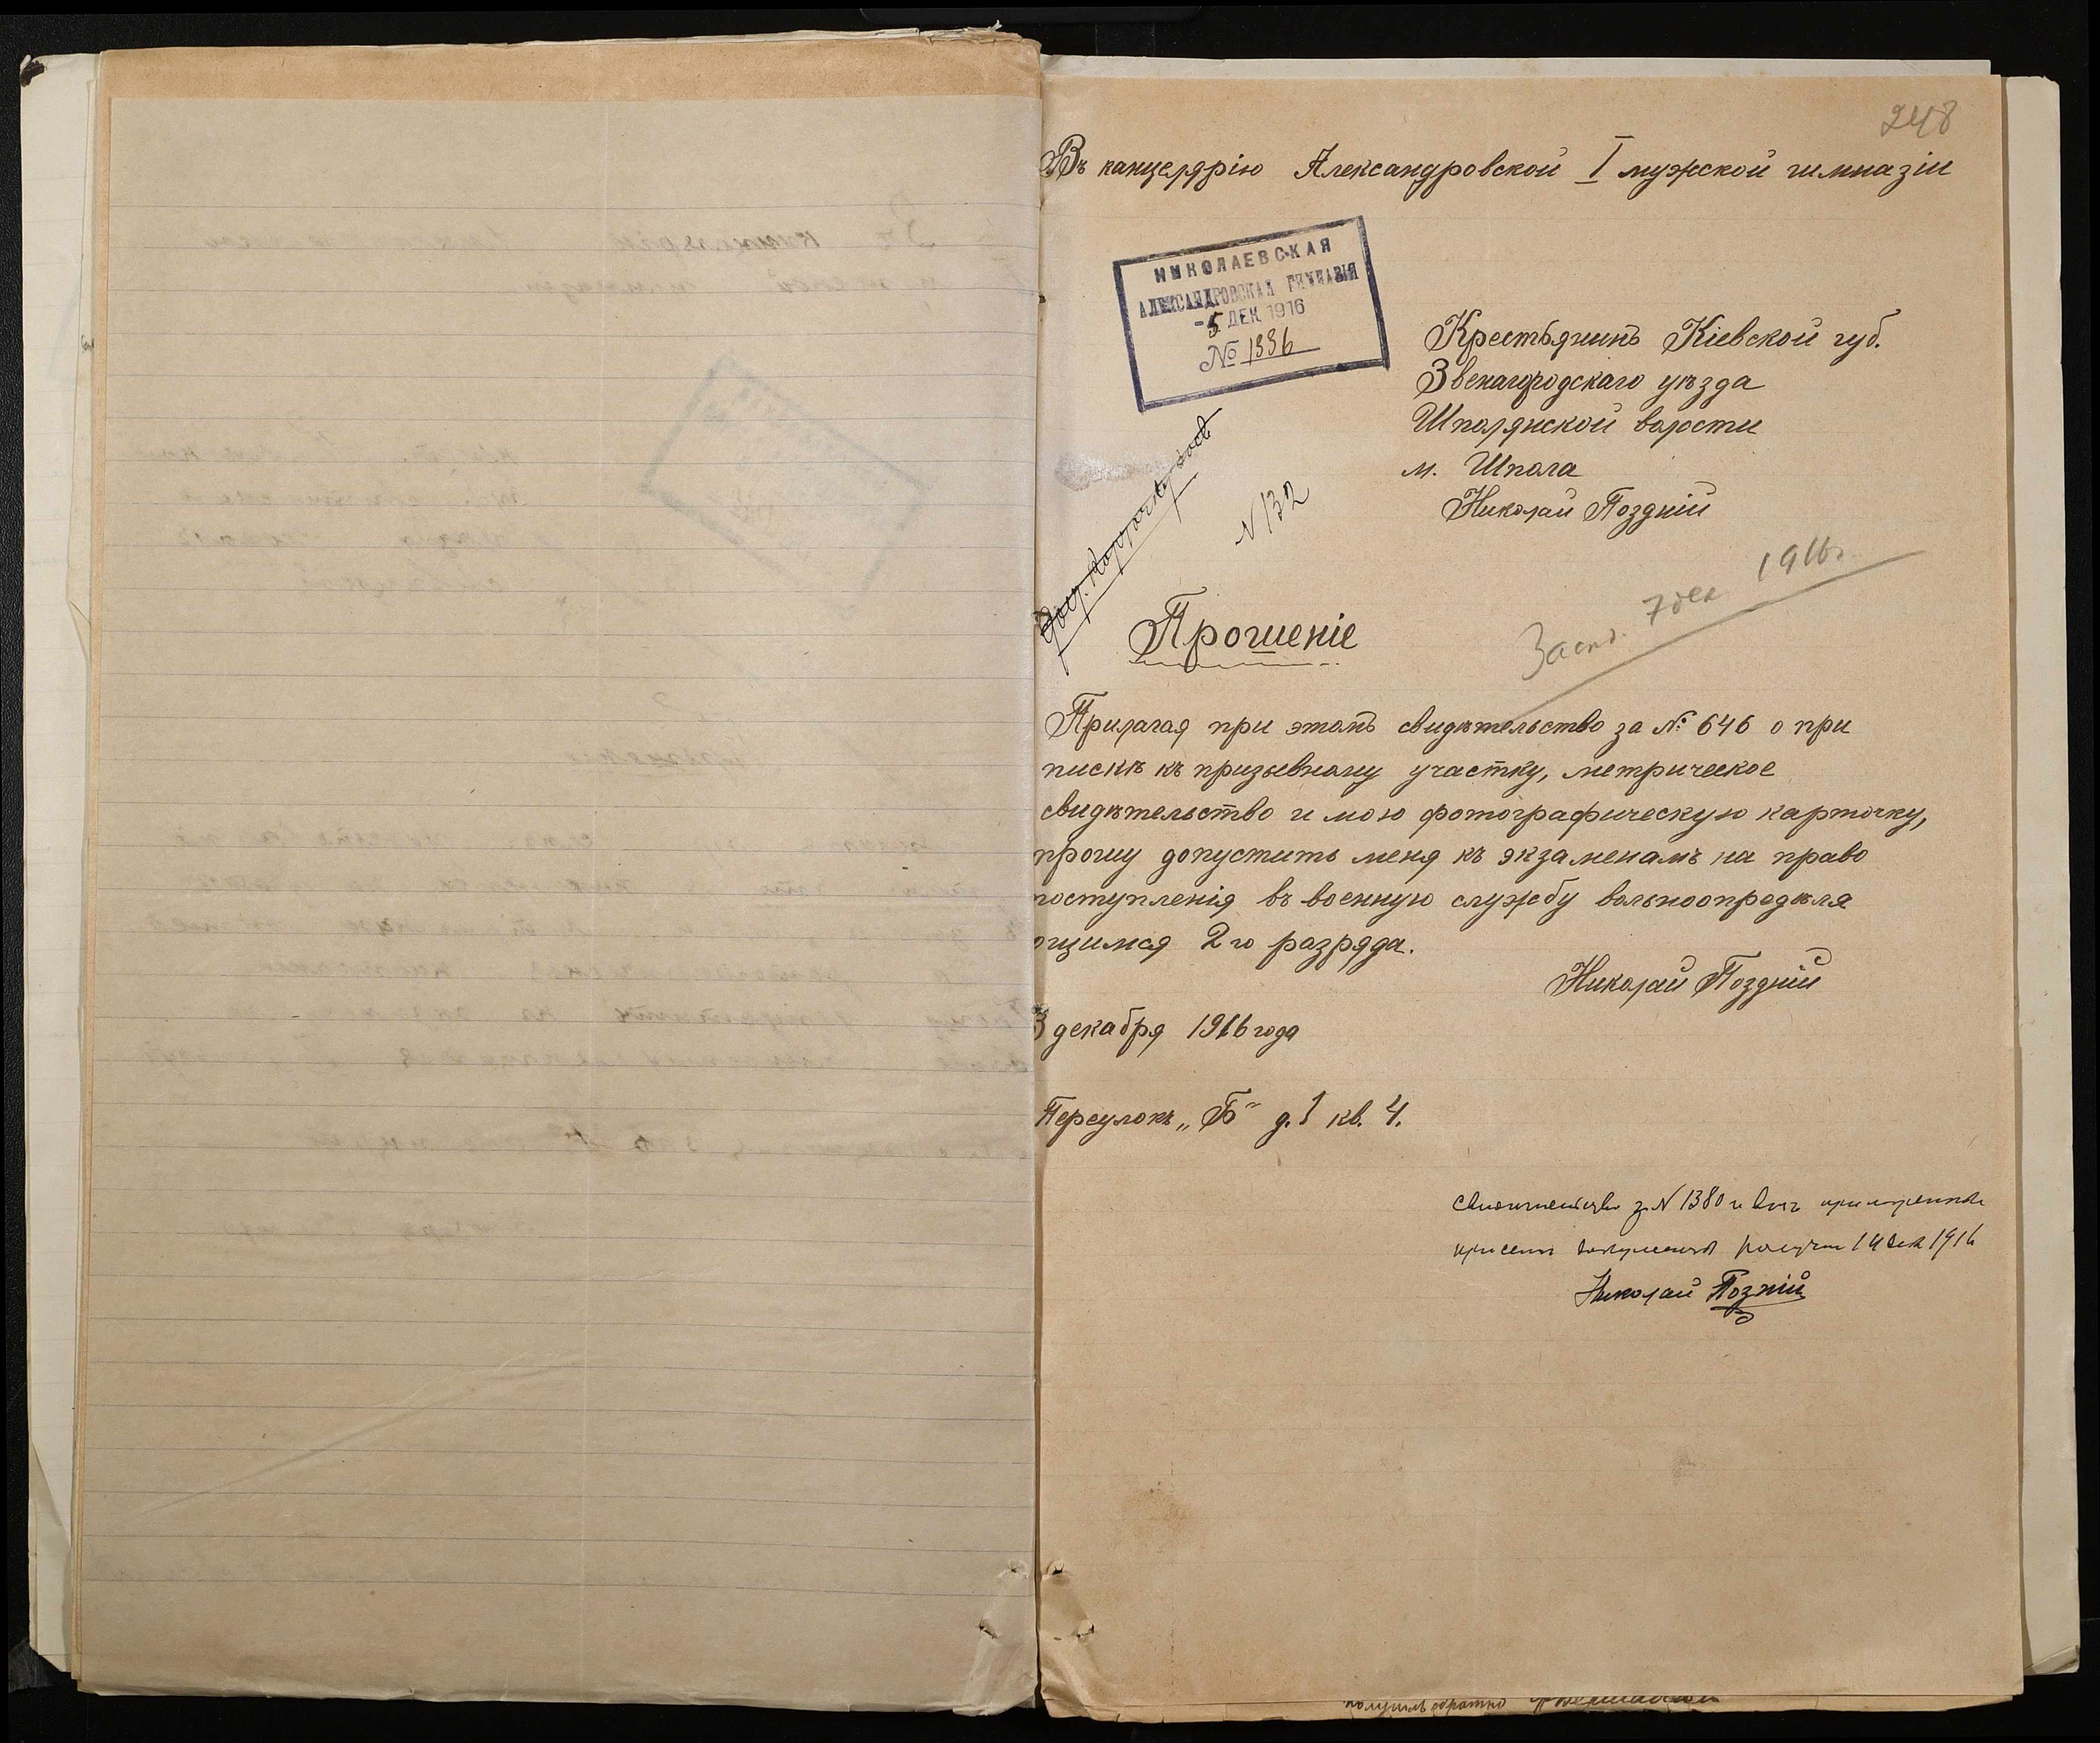 248
Въ канцелярію Александровской I мужской гимназіи
НИКОЛАЕВСКАЯ
АЛЕКСАНДРОВСКАЯ ГИМНАЗІЯ
-5 ДЕК 1916
№ 1336
Крестьянинъ Кіевской губ.
Звенигородскаго уѣзда
Шполянской волости
м. Шпола
Николай Поздній
N 132
7 дек 1916г.
Прошеніе
Прилагая при этомъ свидѣтельство за №: 646 о при
пискѣ къ призывному участку, метрическое
свидѣтельство и мою фотографическую карточку,
прошу допустить меня къ экзаменамъ на право
поступленія въ военную службу вольноопредѣля
ющимся 2го разряда.
Николай Поздній
3 декабря 1916 года
Переулокъ „Б" д. 1 кв. 4.
N 1380 и
документы 14 дек 1916
Николай Позній
получилъ обратно